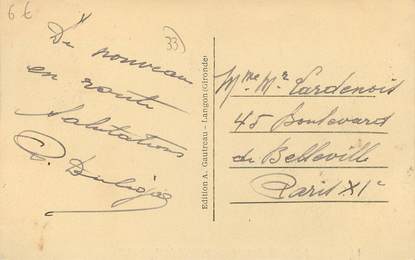 6 €
33
De nouveau
en route
Salutations
Edition A. Gautreau - Langon (Gironde)
Mme Mr Lardenois
45 Boulevard
de Belleville
Paris XIe